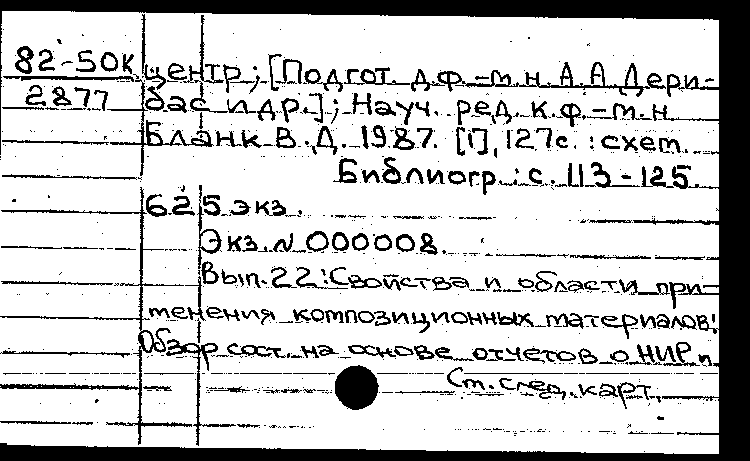 82-50К центр; [Подгот. д.ф.-т.н. А.А Дери-
2877 бас и др.]; Науч. ред. к.ф.-т.н.
Бланк В.Д. 1987. [1], 127с. : схем.
Библиогр.: с. 113-125.
625 экз.
Экз. N 000008.
Вып.22: Свойства и области при-
менения композиционных материалов:
Обзор сост. на основе отчетов о НИР и
См. след. карт.